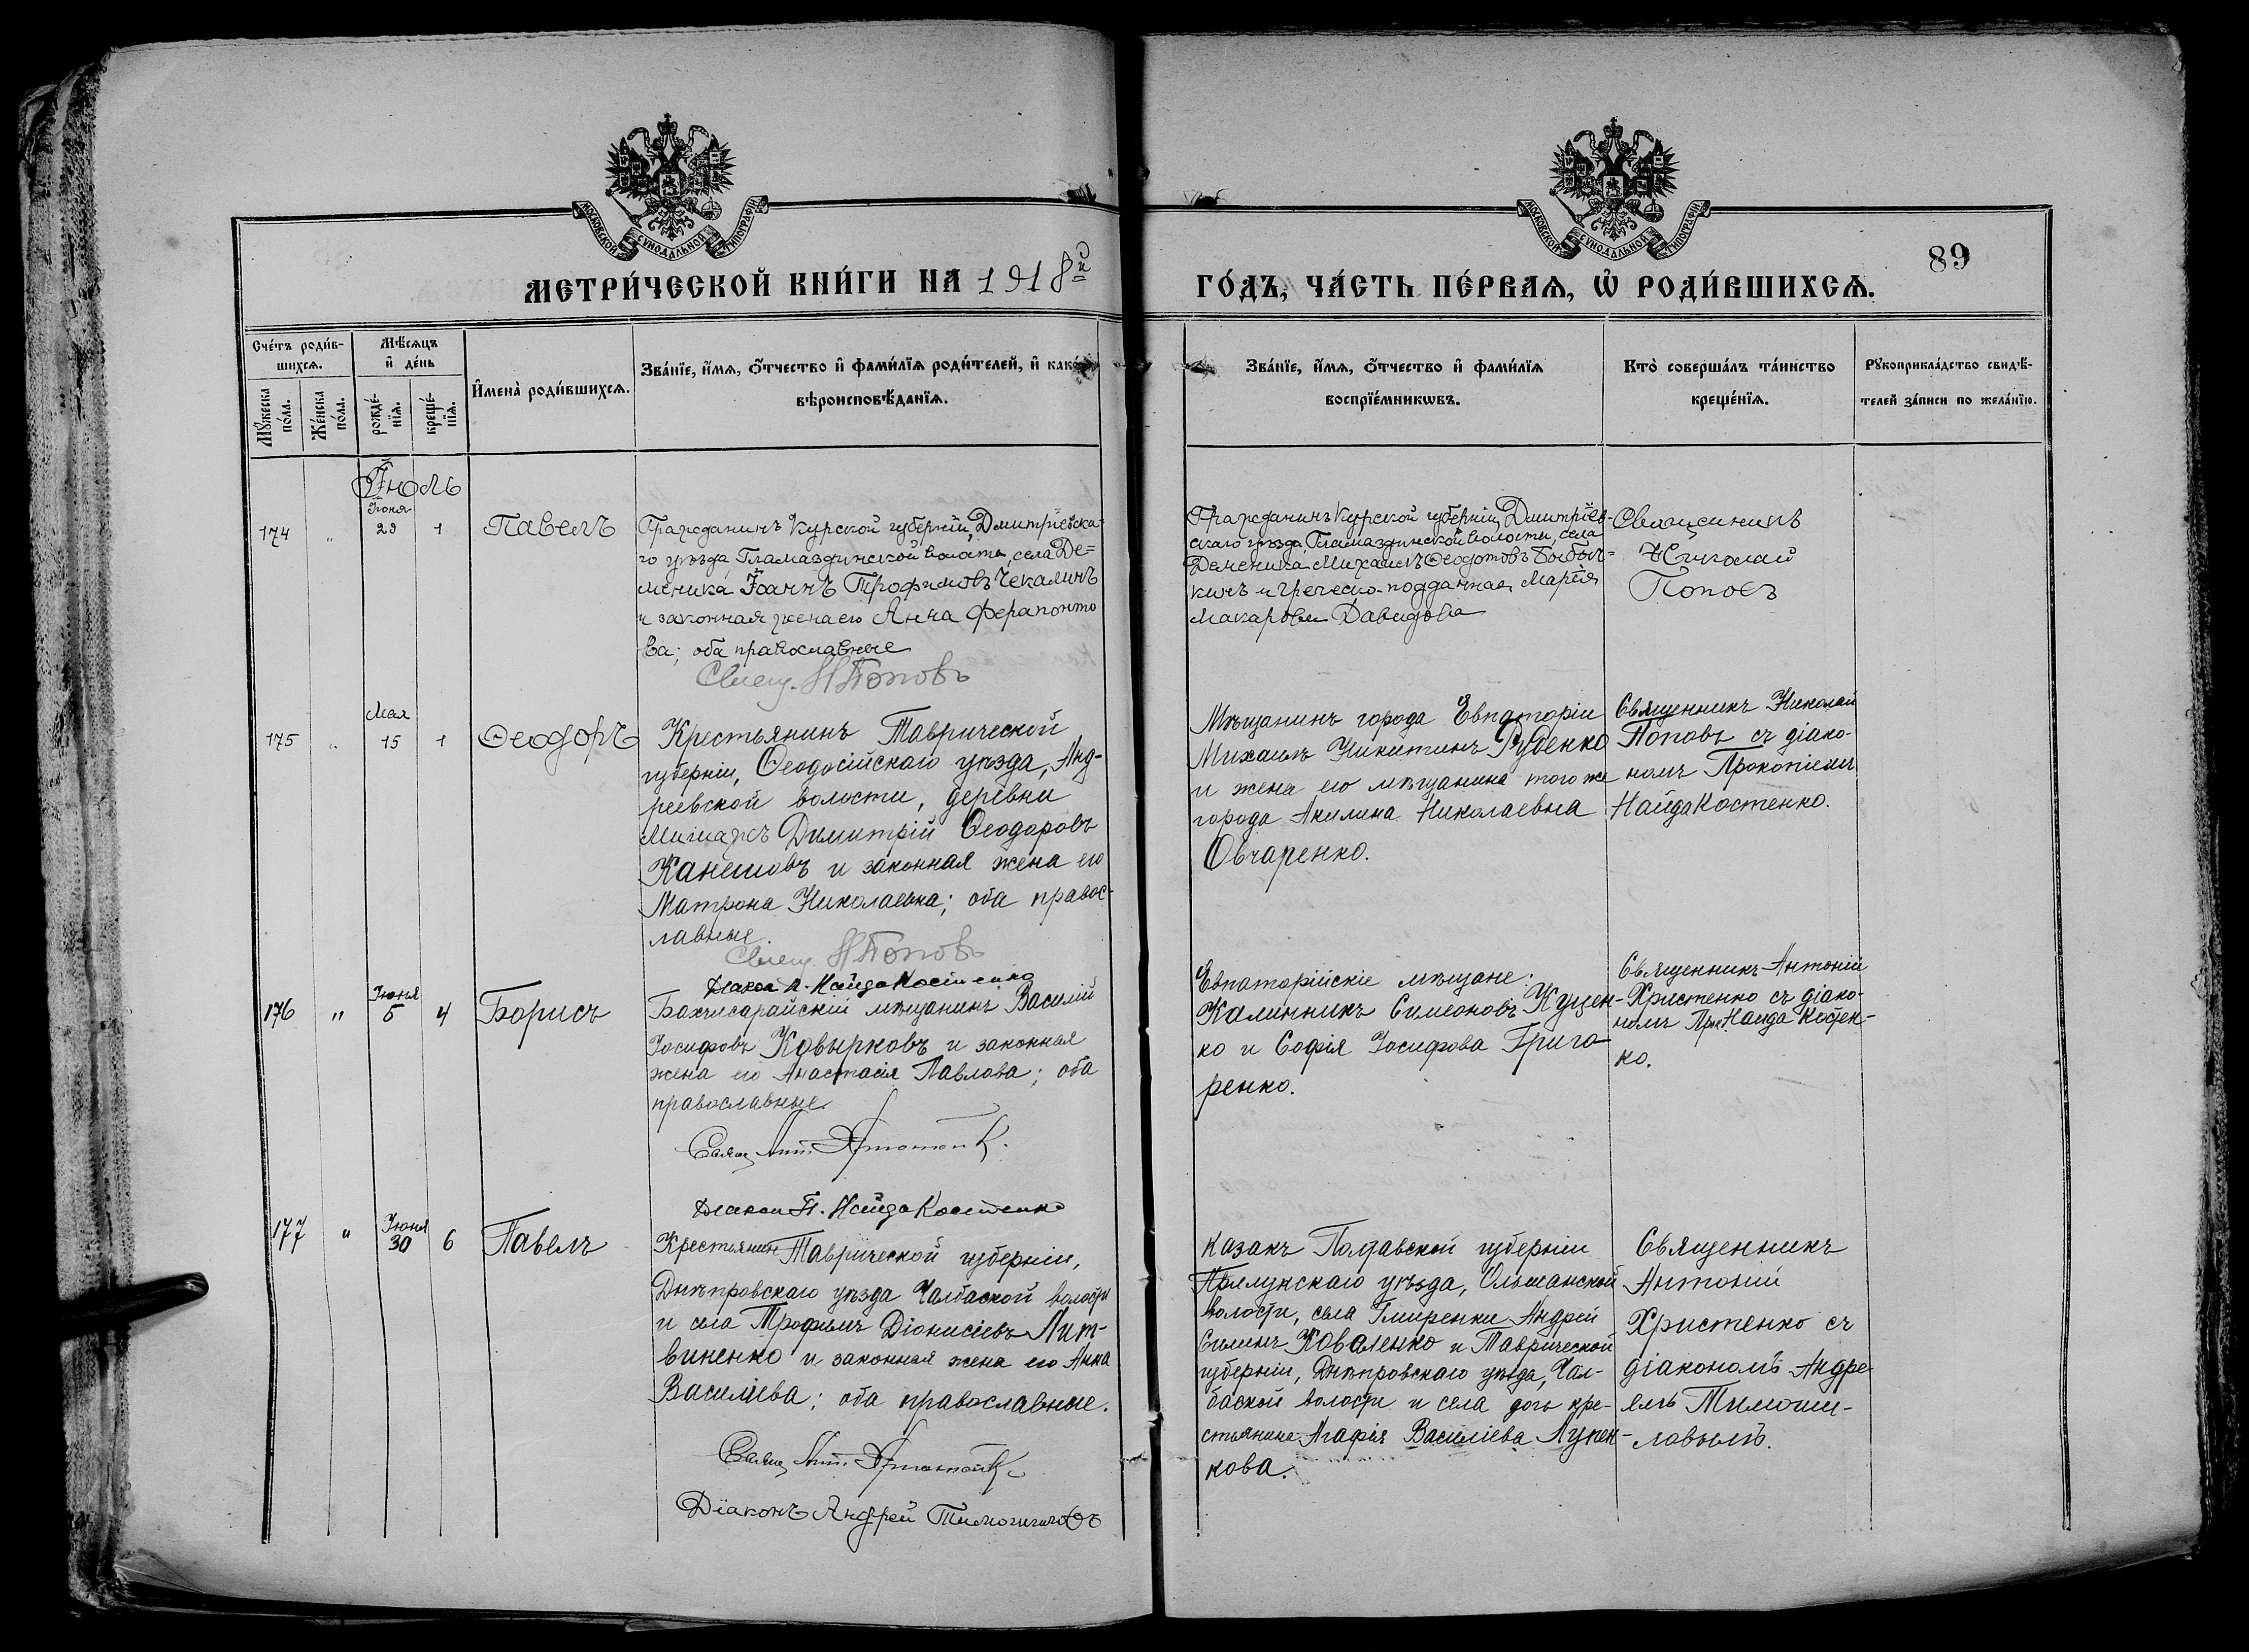 МОСКОВСКОЙ СѴНОДАЛЬНОЙ ТИПОГРАФІИ
МОСКОВСКОЙ СѴНОДАЛЬНОЙ ТИПОГРАФІИ
89
МЕТРИ́ЧЕСКОЙ КНИ́ГИ НА 1918й
ГО́ДЪ, ЧА́СТЬ ПЕ́РВАѦ, Ѡ҆ РОДИ́ВШИХСѦ.
Сче́тъ роди́в-
шихсѧ.
Мꙋ́жеска по́ла.
Же́нска по́ла.
Мѣ́сѧцъ
и҆ де́нь
рожде́-
нїѧ.
креще́-
нїѧ.
И҆мена̀ роди́вшихсѧ.
Зва́нїе, и҆́мѧ, ѻ҆́тчество и҆ фами́лїѧ роди́телей, и҆ како́гѡ
вѣроисповѣ́данїѧ.
Зва́нїе, и҆́мѧ, ѻ҆́тчество и҆ фами́лїѧ
воспрїе́мникѡвъ.
Кто̀ соверша́лъ та́инство
креще́нїѧ.
Рꙋкоприкла́дство свидѣ́-
телей за́писи по жела́нїю.
Іюль
174 " Іюня 29 1 Павелъ
Гражданинъ Курской губерніи, Дмитріевска-
го уѣзда Гламаздинской волости, села Де=
меника Іоаннъ Трофимовъ Чекалинъ
и законная жена его Анна Ферапонто
ва; оба православные
Свящ. Н Поповъ
Гражданинъ Курской губерніи, Дмитріев-
скаго уѣзда, Гламаздинской волости, села
Деменика Михаилъ Ѳеодотовъ
кинъ и греческо-подданная Марія
Макарова Давидова
Священникъ
Николай
Поповъ
175 " Мая 15 1 Ѳеодоръ
Крестьянинъ Таврической
губерніи, Ѳеодосійскаго уѣзда, Анд-
реевской волости, деревни
Димитрій Ѳеодоровъ
Канешовъ и законная жена его
Матрона Николаевна; оба правос-
лавные.
Свящ. Н Поповъ
Діакон П. Найда Костенко
Мѣщанинъ города Евпаторіи
Михаилъ Никитинъ Рубенко
и жена его мѣщанина того же
города Акилина Николаевна
Овчаренко.
Священникъ Николай
Поповъ съ діако-
номъ Прокопіемъ
Найда Костенко.
176 " Іюня 5 4 Борисъ
Бахчисарайскій мѣщанинъ Василій
Іосифовъ Ковырковъ и законная
жена его Анастасія Павлова; оба
православные.
Свящ. Ант.
Діакон П. Найда Костенко
Евпаторійскіе мѣщане:
Калинникъ Симеоновъ Куцен-
ко и Софія Іосифова Григо-
ренко.
Священникъ Антоній
Христенко съ діако-
номъ Прок. Найда Костен-
ко.
177 " Іюня 30 6 Павелъ
Крестьянинъ Таврической губерніи,
Днѣпровскаго уѣзда Чалбаской волости
и села Трофимъ Діонисіевъ Лит-
виненко и законная жена его Анна
Василіева; оба православные.
Свящ. Ант.
Діаконъ Андрей Тимошиловъ
Казакъ Полтавской губерніи
Прилукскаго уѣзда, Ольшанской
волости, села Гмиренки Андрей
Силинъ Коваленко и Таврической
губерніи, Днѣпровскаго уѣзда, Чал-
баской волости и села дочь кре-
стьянина Агафія Василіева Лупен-
кова.
Священникъ
Антоній
Христенко съ
діакономъ Андре-
емъ Тимоши-
ловымъ.